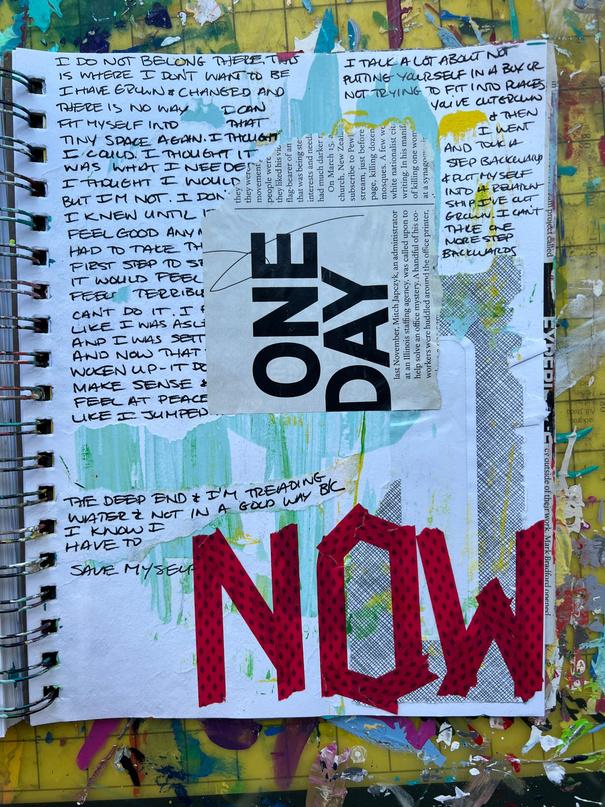 I DO NOT BELONG THERE. THIS
IS WHERE I DON'T WANT TO BE
I HAVE GROWN & CHANGED AND
THERE IS NO WAY I CAN
FIT MYSELF INTO THAT
TINY SPACE AGAIN. I THOUGHT
I COULD. I THOUGHT IT
WAS WHAT I NEEDE
I THOUGHT I WOULD
BUT I'M NOT. I DON'
I KNEW UNTIL I
FEEL GOOD ANY
HAD TO TAKE TH
FIRST STEP TO
IT WOULD FEEL
FEEL TERRIBL
CAN'T DO IT. I
LIKE I WAS ASL
AND I WAS SETT
AND NOW THAT
WOKEN UP - IT DO
MAKE SENSE &
FEEL AT PEACE
LIKE I JUMPED
THE DEEP END & I'M TREADING
WATER & NOT IN A GOOD WAY B/C
I KNOW I
HAVE TO
SAVE MYSELF
I TALK A LOT ABOUT NOT
PUTTING YOURSELF IN A BOX OR
NOT TRYING TO FIT INTO PLACES
YOU'VE OUTGROWN
& THEN
I WENT
AND TOOK A
STEP BACKWARD
& PUT MYSELF
INTO A RELATION
SHIP I'VE OUT
GROWN. I CAN'T
TAKE ONE
MORE STEP
BACKWARDS
movement,
people were
flag-bearer of an
they liked his vi
interests and need
had much darker
On March 15,
church, New Zeal
subscribe to Pewd
stream, just before
page, killing dozen
mosques. A few w
white nationalist ex
writing, in his manif
of killing one won
at a synagog
ONE
DAY
last November, Mitch Japczyk, an administrator
at an Illinois staffing agency, was called upon to
help solve an office mystery. A handful of his co-
workers were huddled around the office printer,
ce outside of their work. Mark Bradford opened
NOW